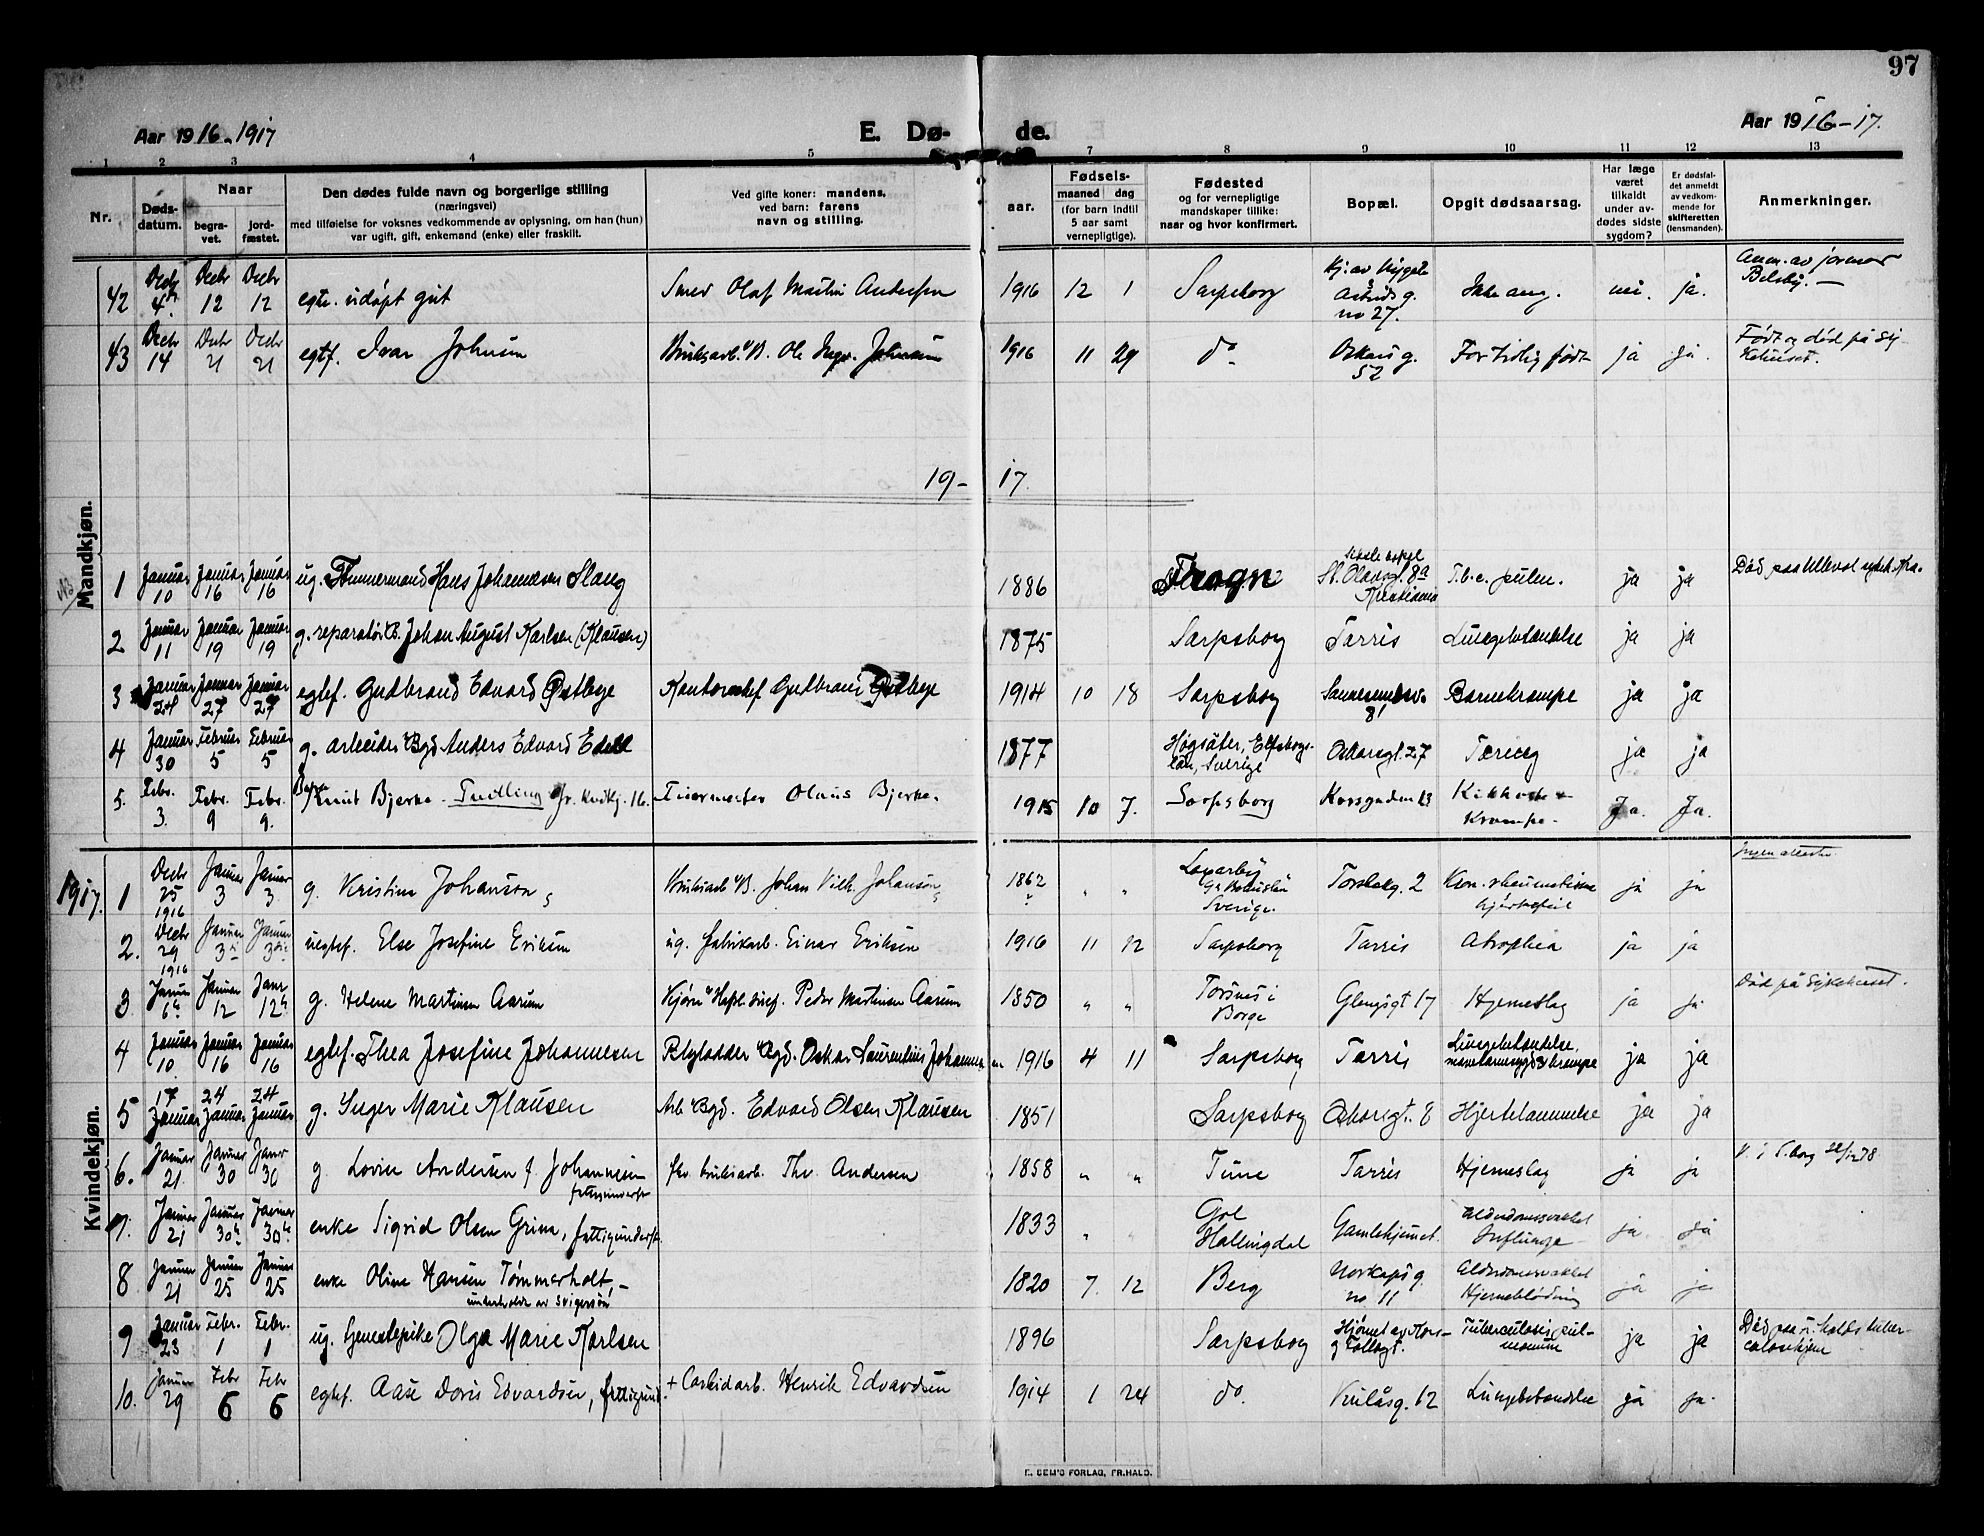 97
Aar 1916-1917
E. Dø-
de.
Aar 1916-17.
1 2 3 4 5 7 8 9 10 11 12 13
Nr.
Døds-
datum.
Naar
begra-
vet.
jord-
fæstet.
Den dødes fulde navn og borgerlige stilling
(næringsvei)
med tilføielse for voksnes vedkommende av oplysning, om han (hun)
var ugift, gift, enkemand (enke) eller fraskilt.
Ved gifte koner: mandens,
ved barn: farens
navn og stilling.
Fødsels-
aar.
maaned dag
(for barn indtil
5 aar samt
vernepligtige).
Fødested
og for vernepligtige
mandskaper tillike:
naar og hvor konfirmert.
Bopæl.
Opgit dødsaarsag.
Har læge
været
tilkaldt
under av-
dødes sidste
sygdom?
Er dødsfal-
det anmeldt
av vedkom-
mende for
skifteretten
(lensmanden).
Anmerkninger.
Mandkjøn.
42 Decbr 4de Decbr 12 Decbr 12 egtf. udøpt gut Smed Olaf Martin Andersen 1916 12 1 Sarpsborg Astrids g. no 27. Ikke ang. nei. ja.
43 Decbr 14 Decbr 21 Decbr 21 egtf. Ivar Johnsen Bruksarb. Ole Johnsen 1916 11 29 do Oskars g. 52 For tidlig født ja ja. Født og død på Sykehuset.
19-17.
1 Januar 10 Januar 16 Januar 16 ug. Tømmermand Hans Johannesen Slang 1886 Frogn St. Olavsgt. 8a Kristiania T.b.c. pulm. ja ja
2 Januar 11 Januar 19 Januar 19 g. reparatør Johan August Karlsen (Klausen) 1875 Sarpsborg Tarris Lungebetændelse ja ja
3 Januar 24 Januar 27 Januar 27 egtef. Gudbrand Edvard Østbye Kontorchef Gudbrand Østbye 1914 10 18 Sarpsborg 81 Barnekrampe ja ja
4 Januar 30 Februar 5 Februar 5 g. arbeider Bgd Anders Edvard Edell 1877 Høgsäter, Elfsborgs-län, Sverige Oskarsgt. 27 Tæring ja ja
5. Febr. 3. Febr. 9 Febr. 9. Barn Knut Bjerke - Tvilling jfr. Kvdkj. 16. Olaus Bjerke. 1915 10 7. Sarpsborg Korsgaden 13 Kikhoste Krampe. Ja. Ja.
Kvindekjøn.
1917.
1 Decbr 25 1916 Januar 3 Januar 3. g. Kristine Johanson Bruksarb B. Johan Vilh. Johanson 1862 " " Sverige. Torsbekg. 2 Kron. rheumatisme hjertefeil ja ja Ingen attester.
2. Decbr 29 1916 Januar 3 Januar 3 uegtef. Else Josefine Eriksen ug. fabrikarb. Einar Eriksen 1916 11 12 Sarpsborg Tarris Atrophia ja ja
3 Januar 6te Januar 12 Janr 12te g. Helene Martinsen Aarum Peder Martinsen Aarum 1850 " " Torsnes i Borge Glengsgt 17 Hjerneslag ja ja Død på Sykehuset.
4 Januar 10 Januar 16 Januar 16 egtef. Thea Josefine Johannesen Oskar Laurentius Johannesen 1916 4 11 Sarpsborg Tarris Lungebetændelse, ja ja
5 17 Januar 24 Januar 24 Januar g. Inger Marie Klausen Arb. Bgd. Edvard Olsen Klausen 1851 Sarpsborg Oskarsgt. 8 Hjertelammelse ja ja
6. Januar 21. Januar 30 Janr 30 g. Lovise Andersen f. Johannesen fattigunderst. fhv. bruksarb. Thv. Andersen 1858 " " Tune Tarris Hjerneslag ja ja
7. Januar 21 Januar 30te Januar 30te enke Sigrid Olsen Grina, fattigunderst. 1833 " " Gol Hallingdal Gamlehjemmet. Alderdomssvakhet Influenza ja. ja
8 Januar 21 Januar 25 Januar 25 enke Oline Hansen Tømmerholt, - underholdt av svigersøn 1820 7. 12 Berg Nordkaps g. no 11 Alderdomssvakhet Hjerneblødning ja ja
9 Januar 23 Febr. 1 Febr. 1 ug. Tjenestepike Olga Marie Karlsen 1896 Sarpsborg Hjørnet av Kors- g Tollbgt. Tuberculosis pul-monum ja ja
10. Januar 29 Febr 6 Febr 6 egtef. Aase Doris Edvardsen, fattigund. + Carbidarb. Henrik Edvardsen 1914 1 24 do. Kulåsg. 12 Lungebetændelse ja ja.
E. SEM'S FORLAG, FR.HALD.